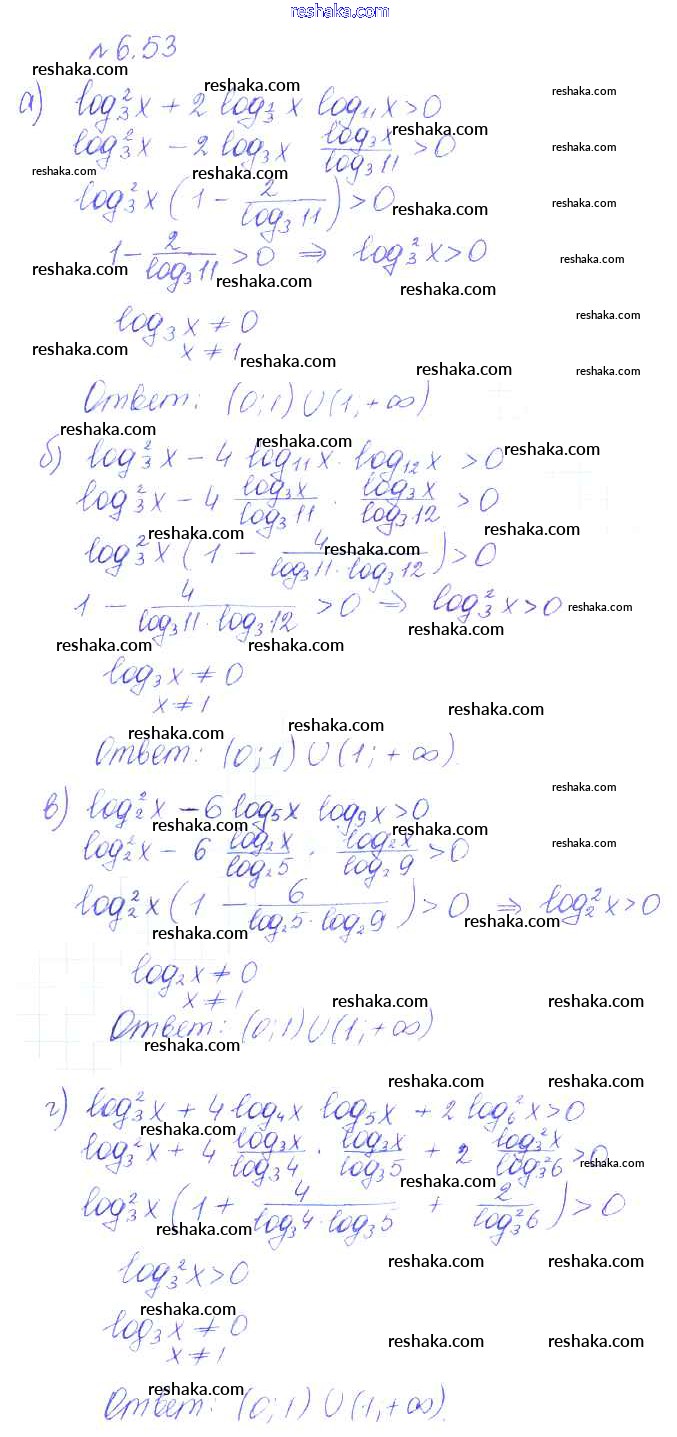 reshaka.com
№ 6.53
а) log₃²x + 2 log_{1/3} x log₁₁x > 0
log₃²x − 2 log₃x log₃x/log₃11 > 0
log₃²x (1 − 2/log₃11) > 0
1 − 2/log₃11 > 0 ⇒ log₃²x > 0
log₃x ≠ 0
x ≠ 1
Ответ: (0;1) ∪ (1;+∞)
б) log₃²x − 4 log₁₁x · log₁₂x > 0
log₃²x − 4 log₃x/log₃11 · log₃x/log₃12 > 0
log₃²x (1 − 4/(log₃11 · log₃12)) > 0
1 − 4/(log₃11 · log₃12) > 0 ⇒ log₃²x > 0
log₃x ≠ 0
x ≠ 1
Ответ: (0;1) ∪ (1;+∞).
в) log₂²x − 6 log₅x log₉x > 0
log₂²x − 6 log₂x/log₂5 · log₂x/log₂9 > 0
log₂²x (1 − 6/(log₂5 · log₂9)) > 0 ⇒ log₂²x > 0
log₂x ≠ 0
x ≠ 1
Ответ: (0;1) ∪ (1;+∞)
г) log₃²x + 4 log₄x log₅x + 2 log₆²x > 0
log₃²x + 4 log₃x/log₃4 · log₃x/log₃5 + 2 log₃²x/log₃²6 > 0
log₃²x (1 + 4/(log₃4 · log₃5) + 2/log₃²6) > 0
log₃²x > 0
log₃x ≠ 0
x ≠ 1
Ответ: (0;1) ∪ (1,+∞).